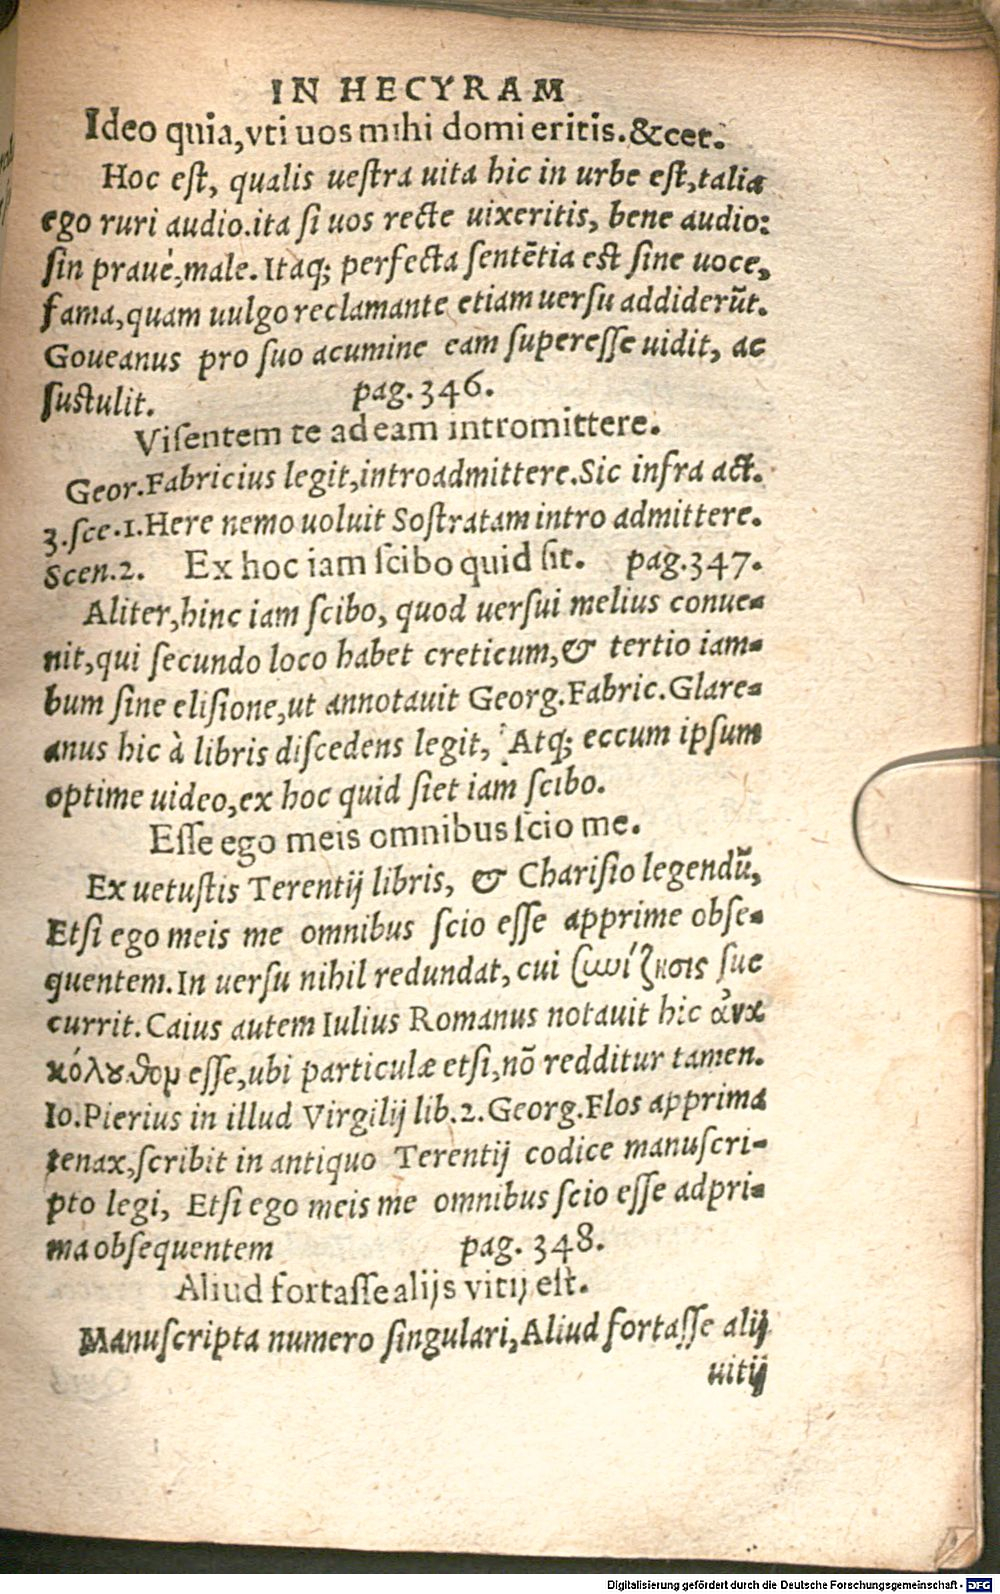 IN HECYRAM
Ideo quia,vti uos mihi domi eritis.&cet.
Hoc eſt, qualis ueſtra uita hic in urbe eſt,talia
ego ruri audio.ita ſi uos recte uixeritis, bene audio:
ſin praué,male. Itaq; perfecta ſentētia est ſine uoce,
fama,quam uulgo reclamante etiam uerſu addiderūt.
Goueanus pro ſuo acumine eam ſupereſſe uidit, ac
ſustulit. pag.346.
Viſentem te ad eam intromittere.
Geor.Fabricius legit,introadmittere.Sic infra act.
3.ſce.1.Here nemo uoluit Soſtratam intro admittere.
Scen.2. Ex hoc iam ſcibo quid ſit. pag.347.
Aliter,hinc iam ſcibo, quod uerſui melius conue-
nit,qui ſecundo loco habet creticum,& tertio iam-
bum ſine eliſione,ut annotauit Georg.Fabric.Glare-
anus hic à libris diſcedens legit, Atq; eccum ipſum
optime uideo,ex hoc quid ſiet iam ſcibo.
Eſſe ego meis omnibus ſcio me.
Ex uetuſtis Terentij libris, & Chariſio legendū,
Etſi ego meis me omnibus ſcio eſſe apprime obſe-
quentem.In uerſu nihil redundat, cui συνίζησις ſuc
currit.Caius autem Iulius Romanus notauit hic ἀνα
κόλȣθομ eſſe,ubi particulæ etſi,nō redditur tamen.
Io.Pierius in illud Virgilij lib.2.Georg.Flos apprima
tenax,ſcribit in antiquo Terentij codice manuſcri-
pto legi, Etſi ego meis me omnibus ſcio eſſe adpri-
ma obſequentem pag. 348.
Aliud fortaſſe alijs vitij eſt.
Manuſcripta numero ſingulari,Aliud fortaſſe alij
uitij
Digitalisierung gefördert durch die Deutsche Forschungsgemeinschaft - DFG